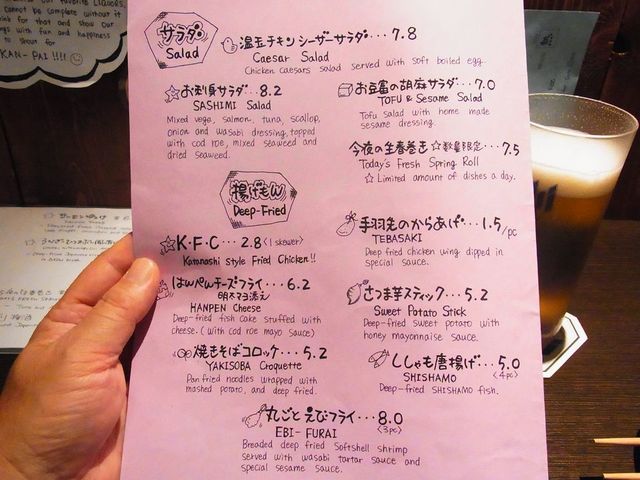 favourite LIQUORS,
cannot be complete without it
drink for that and show our
with fun and happiness
to shout for
KAN-PAI !!!!
サラダ
Salad
温玉チキンシーザーサラダ・・・7.8
Caesar Salad
Chicken caesars salad served with soft boiled egg.
お刺身サラダ・・8.2
SASHIMI Salad
Mixed vege, salmon, tuna, scallop,
onion and wasabi dressing, topped
with cod roe, mixed seaweed and
dried seaweed.
お豆富の胡麻サラダ・・7.0
TOFU & Sesame Salad
Tofu salad with home made
sesame dressing.
今夜の生春巻き☆数量限定・・7.5
Today's Fresh Spring Roll
☆ Limited amount of dishes a day.
揚げもん
Deep-Fried
K・F・C・・・2.8〈1 skewer〉
Katanashi Style Fried Chicken!!
手羽先のからあげ・・・1.5/pc
TEBASAKI
Deep fried chicken wing dipped in
special sauce.
はんぺんチーズフライ・・・6.2
明太マヨ添え
HANPEN Cheese
Deep-fried fish cake stuffed with
cheese. (with cod roe mayo sauce)
さつま芋スティック・・5.2
Sweet Potato Stick
Deep-fried sweet potato with
honey mayonnaise sauce.
焼きそばコロッケ・・・5.2
YAKISOBA Croquette
Pan fried noodles wrapped with
mashed potato, and deep fried.
ししゃも唐揚げ・・・5.0
〈4pc〉
SHISHAMO
Deep-fried SHISHAMO fish.
丸ごとえびフライ・・・8.0
〈3pc〉
EBI-FURAI
Breaded deep fried Softshell shrimp
served with wasabi tartar sauce and
special sesame sauce.